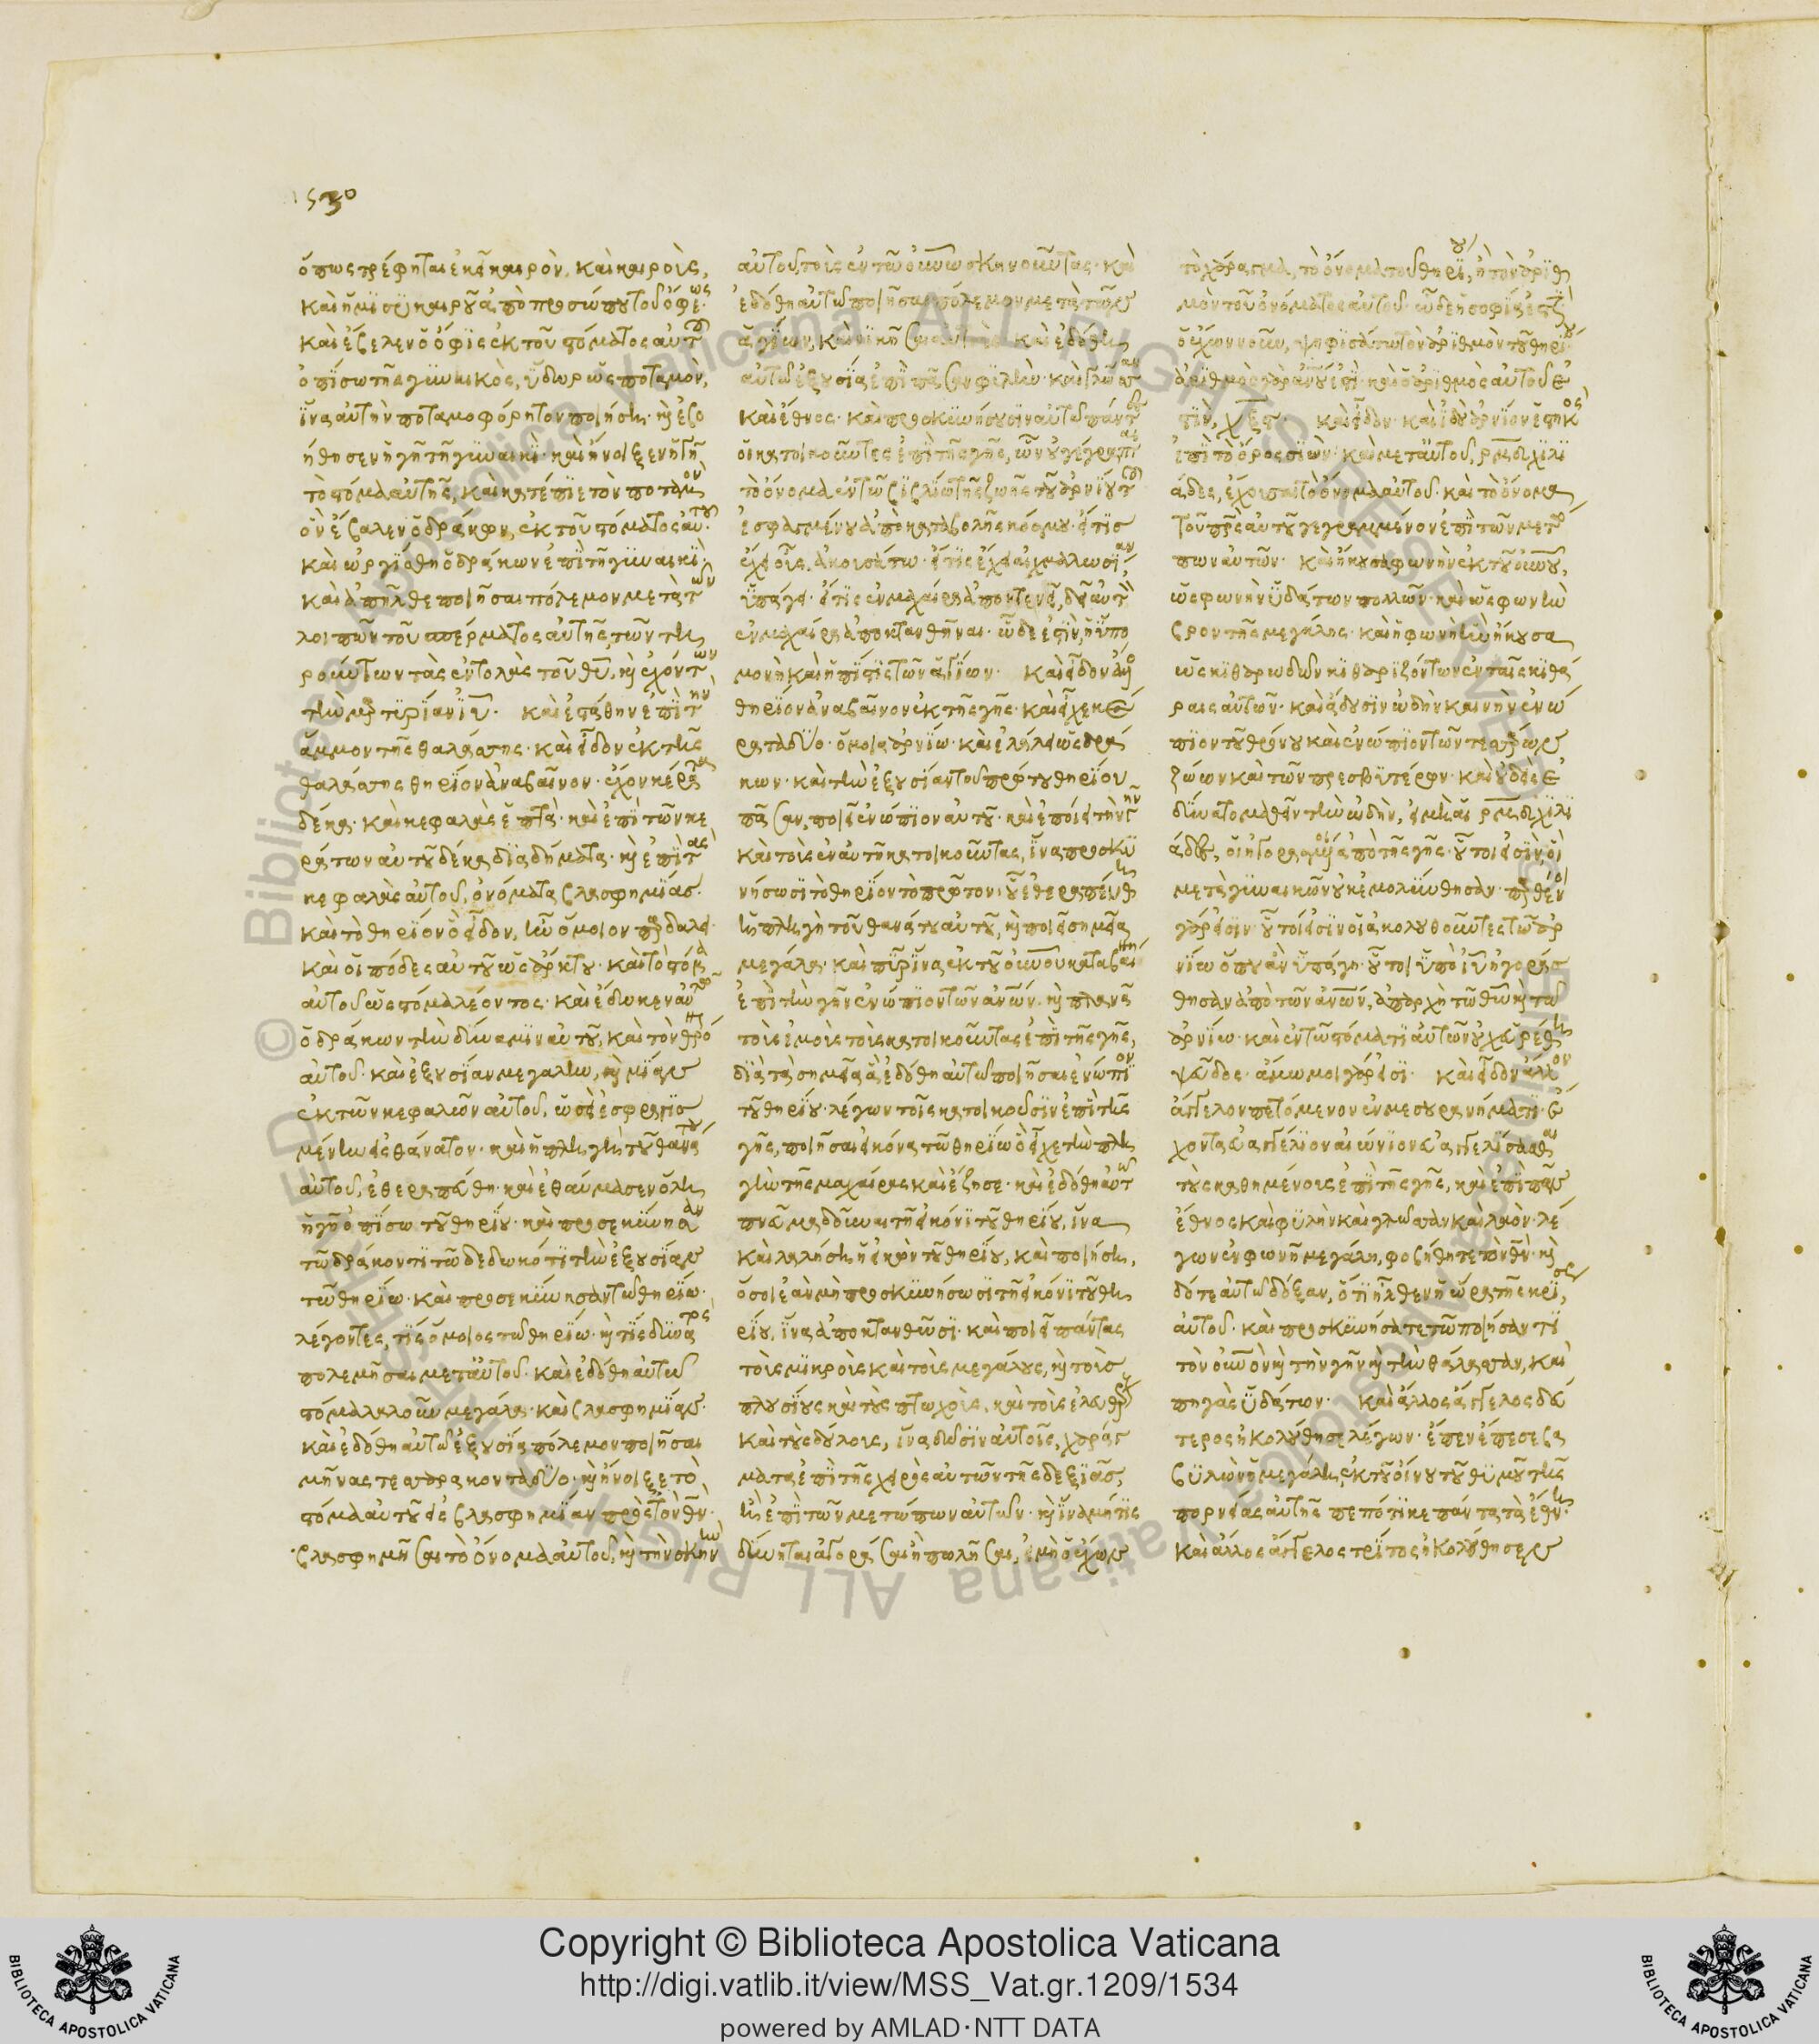 1530
ὅπως τρέφηται ἐκεῖ καιρὸν, καὶ καιροὺς,
καὶ ἥμϊσυ καιροῦ ἀπὸ προσώπου τοῦ ὄφεως.
καὶ ἔβαλεν ὁ ὄφϊς ἐκ τοῦ στόματος αὐτοῦ
ὀπίσω τῆς γϋναικὸς, ὕδωρ ὡς ποταμὸν,
ἵνα αὐτὴν ποταμοφόρητον ποιήση. κ ἐβο
ήθησεν ἡ γῆ τῆ γϋναικὶ. καὶ ἤνοιξεν ἡ γῆ
τὸ στόμα αὐτῆς, καὶ κατέπϊε τὸν ποταμὸν
ὃν ἔβαλεν ὁ δράκων ἐκ τοῦ στόματος αὐτου.
καὶ ὠργίσθη ὁ δράκων ἐπὶ τῆ γϋναικὶ.
καὶ ἀπῆλθε ποιῆσαι πόλεμον μετὰ τῶν
λοιπῶν τοῦ σπέρματος αὐτῆς, τῶν τη
ρούντων τὰς ἐντολὰς τοῦ θυ, κ ἐχόντων
τὴν μαρτϋρίαν ιυ. καὶ ἐστάθην ἐπὶ τὴν
ἄμμον τῆς θαλάσσης. καὶ εἶδον ἐκ τῆς
θαλάσσης θηρίον ἀναβαῖνον. ἔχον κέρατα
δέκα. καὶ κεφαλὰς ἑπτὰ. καὶ ἐπὶ τῶν κε
ράτων αὐτοῦ δέκα διαδήματα. κ ἐπὶ τὰς
κεφαλὰς αὐτοῦ, ὀνόματα βλασφημίας.
καὶ τὸ θηρίον ὃ εἶδον, ἦν ὅμοιον παρδάλει.
καὶ οἱ πόδες αὐτοῦ ὡς ἄρκτου. καὶ τὸ στόμα
αὐτοῦ ὡς στόμα λέοντος. καὶ ἔδωκεν αὐτῶ
ὁ δράκων τὴν δύναμϊν αὐτοῦ, καὶ τὸν θρόνον
αὐτοῦ. καὶ ἐξουσίαν μεγάλην, κ μίαν
ἐκ τῶν κεφαλῶν αὐτοῦ, ὡσεὶ ἐσφραγισ
μένην εἰς θάνατον. καὶ ἡ πληγὴ τοῦ θανάτου
αὐτοῦ, ἐθεραπεύθη. καὶ ἐθαύμασεν ὅλη
ἡ γῆ ὀπίσω τοῦ θηρίου. καὶ προσεκϋνησαν
τῶ δράκοντι τῶ δεδωκότι τὴν ἐξουσίαν
τῶ θηρίω. καὶ προσεκϋνησαν τῶ θηρίω.
λέγοντες, τίς ὅμοιος τῶ θηρίω. κ τίς δυνατὸς
πολεμῆσαι μετ' αὐτοῦ. καὶ ἐδόθη αὐτῶ
στόμα λαλοῦν μεγάλα. καὶ βλασφημίαν.
καὶ ἐδόθη αὐτῶ ἐξουσία πόλεμον ποιῆσαι
μῆνας τεσσαράκοντα δύο. κ ἤνοιξε τὸ
στόμα αὐτοῦ εἰς βλασφημίαν πρὸς τὸν θν.
βλασφημῆσαι τὸ ὄνομα αὐτοῦ, κ τὴν σκηνὴν
αὐτοῦ, τοὺς ἐν τῶ οὐνω σκηνοῦντας. καὶ
ἐδόθη αὐτῶ ποιῆσαι πόλεμον μετὰ τῶν
ἁγίων, καὶ νικῆσαι αὐτοὺς. καὶ ἐδόθη
αὐτῶ ἐξουσία ἐπὶ πᾶσαν φϋλὴν. καὶ γλῶσσαν
καὶ ἔθνος. καὶ προσκϋνήσουσιν αὐτῶ πάντες
οἱ κατοικοῦντες ἐπὶ τῆς γῆς, ὧν οὐ γέγραπται
τὸ ὄνομα ἐν τῶ βιβλίω τῆς ζωῆς τοῦ ἀρνίου τοῦ
ἐσφαγμένου ἀπὸ καταβολῆς κόσμου. εἴ τις
ἔχει οὖς, ἀκουσάτω. εἴ τις ἔχει αἰχμαλωσίαν
ὑπάγει. εἴ τις ἐν μαχαίρα ἀποκτενεῖ, δεῖ αὐτὸν
ἐν μαχαίρα ἀποκτανθῆναι. ὧδέ ἐστιν ἡ ὑπο
μονὴ καὶ ἡ πίστις τῶν ἁγίων. καὶ εἶδον ἄλλο
θηρίον ἀναβαῖνον ἐκ τῆς γῆς. καὶ εἶχε κέ
ρατα δύο. ὅμοια ἀρνίω. καὶ ἐλάλει ὡς δρά
κων. καὶ τὴν ἐξουσίαν τοῦ πρώτου θηρίου
πᾶσαν, ποιεῖ ἐνώπιον αὐτοῦ. καὶ ἐποίει τὴν γῆν
καὶ τοὺς ἐν αὐτῆ κατοικοῦντας, ἵνα προσκϋ
νήσωσι τὸ θηρίον τὸ πρῶτον. οὗ ἐθεραπεύθη
ἡ πληγὴ τοῦ θανάτου αὐτοῦ, κ ποιεῖ σημεῖα
μεγάλα. καὶ πῦρ ἵνα ἐκ τοῦ οὐνοῦ καταβαίνη
ἐπὶ τὴν γῆν ἐνώπιον τῶν ἀνων. κ πλανᾶ
τοὺς ἐμοὺς τοὺς κατοικοῦντας ἐπὶ τῆς γῆς,
διὰ τὰ σημεῖα ἃ ἐδόθη αὐτῶ ποιῆσαι ἐνώπιον
τοῦ θηρίου. λέγων τοῖς κατοικοῦσιν ἐπὶ τῆς
γῆς, ποιῆσαι εἰκόνα τῶ θηρίω ὃ εἶχε τὴν πλη
γὴν τῆς μαχαίρας καὶ ἔζησε. καὶ ἐδόθη αὐτῶ
πνεῦμα δοῦναι τῆ εἰκόνι τοῦ θηρίου, ἵνα
καὶ λαλήση ἡ εἰκὼν τοῦ θηρίου, καὶ ποιήση,
ὅσοι ἐὰν μὴ προσκϋνήσωσι τῆ εἰκόνι τοῦ θη
ρίου, ἵνα ἀποκτανθῶσι. καὶ ποιεῖ πάντας
τοὺς μικροὺς καὶ τοὺς μεγάλους, κ τοὺς
πλουσίους καὶ τοὺς πτωχοὺς, καὶ τοὺς ἐλευθέρους
καὶ τοὺς δούλους, ἵνα δῶσιν αὐτοῖς, χαράγ
ματα ἐπὶ τῆς χειρὸς αὐτῶν τῆς δεξιᾶς,
ἢ ἐπὶ τῶν μετώπων αὐτῶν. κ ἵνα μή τις
δύνηται ἀγοράσαι ἢ πωλῆσαι, εἰ μὴ ὁ ἔχων
τὸ χάραγμα, τὸ ὄνομα τοῦ θηρίου, ἢ τὸν ἀριθ
μὸν τοῦ ὀνόματος αὐτοῦ. ὧδε ἡ σοφία ἐστὶν
ὁ ἔχων νοῦν, ψηφισάτω τὸν ἀριθμὸν τοῦ θηρίου
ἀριθμὸς γὰρ ἀνου ἐστὶ. καὶ ὁ ἀριθμὸς αὐτοῦ ἐ
στὶν, χξς. καὶ εἶδον. καὶ ἰδοὺ ἀρνίον ἑστηκὸς
ἐπὶ τὸ ὄρος σιὼν. καὶ μετ' αὐτοῦ, ρμδ χιλι
άδες, ἔχουσαι τὸ ὄνομα αὐτοῦ. καὶ τὸ ὄνομα
τοῦ πρς αὐτοῦ γεγραμμένον ἐπὶ τῶν μετώ
πων αὐτῶν. καὶ ἤκουσα φωνὴν ἐκ τοῦ οὐνοῦ,
ὡς φωνὴν ὑδάτων πολλῶν. καὶ ὡς φωνὴν
βροντῆς μεγάλης. καὶ ἡ φωνὴ ἣν ἤκουσα
ὡς κιθαρωδῶν κιθαριζόντων ἐν ταῖς κιθά
ραις αὐτῶν. καὶ ἄδουσιν ὠδὴν καινὴν ἐνώ
πιον τοῦ θρόνου καὶ ἐνώπιον τῶν τεσσάρων
ζώων καὶ τῶν πρεσβυτέρων. καὶ οὐδεὶς ἐ
δύνατο μαθεῖν τὴν ὠδὴν, εἰ μὴ αἱ ρμδ χιλι
άδες, οἱ ἠγορασμένοι ἀπὸ τῆς γῆς. οὗτοί εἰσιν οἳ
μετὰ γυναικῶν οὐκ ἐμολύνθησαν. παρθένοι
γάρ εἰσιν. οὗτοί εἰσιν οἱ ἀκολουθοῦντες τῶ ἀρ
νίω ὅπου ἂν ὑπάγη. οὗτοι ὑπὸ ιυ ἠγοράσ
θησαν ἀπὸ τῶν ἀνων, ἀπαρχὴ τῶ θω κ τῶ
ἀρνίω. καὶ ἐν τῶ στόματι αὐτῶν οὐχ εὑρέθη
ψεῦδος. ἄμωμοι γάρ εἰσι. καὶ εἶδον ἄλλον
ἄγγελον πετόμενον ἐν μεσουρανήματι. ἔ
χοντα εὐαγγέλιον αἰώνιον εὐαγγελίσασθαι
τοὺς καθημένους ἐπὶ τῆς γῆς, καὶ ἐπὶ πᾶν
ἔθνος καὶ φϋλὴν καὶ γλῶσσαν καὶ λαὸν. λέ
γων ἐν φωνῆ μεγάλη, φοβήθητε τὸν θν. κ
δότε αὐτῶ δόξαν, ὅτι ἦλθεν ἡ ὥρα τῆς κρίσεως
αὐτοῦ. καὶ προσκϋνήσατε τῶ ποιήσαντι
τὸν οὐνον κ τὴν γῆν κ τὴν θάλασσαν, καὶ
πηγὰς ὑδάτων. καὶ ἄλλος ἄγγελος δεύ
τερος ἠκολούθησε λέγων. ἔπεσεν ἔπεσε βα
βϋλὼν ἡ μεγάλη, ἐκ τοῦ οἴνου τοῦ θϋμοῦ τῆς
πορνείας αὐτῆς πεπότικε πάντα τὰ ἔθνη.
καὶ ἄλλος ἄγγελος τρίτος ἠκολούθησεν
© Biblioteca Apostolica Vaticana ALL RIGHTS RESERVED
Copyright © Biblioteca Apostolica Vaticana
http://digi.vatlib.it/view/MSS_Vat.gr.1209/1534
powered by AMLAD·NTT DATA
BIBLIOTECA APOSTOLICA VATICANA
BIBLIOTECA APOSTOLICA VATICANA